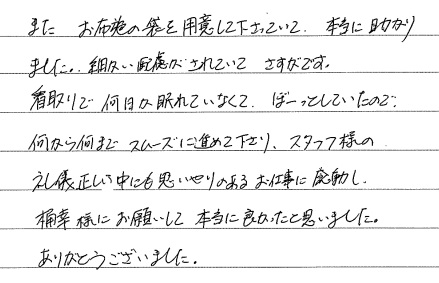 また お布施の袋を用意して下さっていて、本当に助かり
ました。細かい配慮がされていて さすがです。
看取りで何日か眠れていなくて、ぼーっとしていたので、
何から何までスムーズに進めて下さり、スタッフ様の
礼儀正しい中にも思いやりのあるお仕事に感動し、
桶幸様にお願いして本当に良かったと思いました。
ありがとうございました。